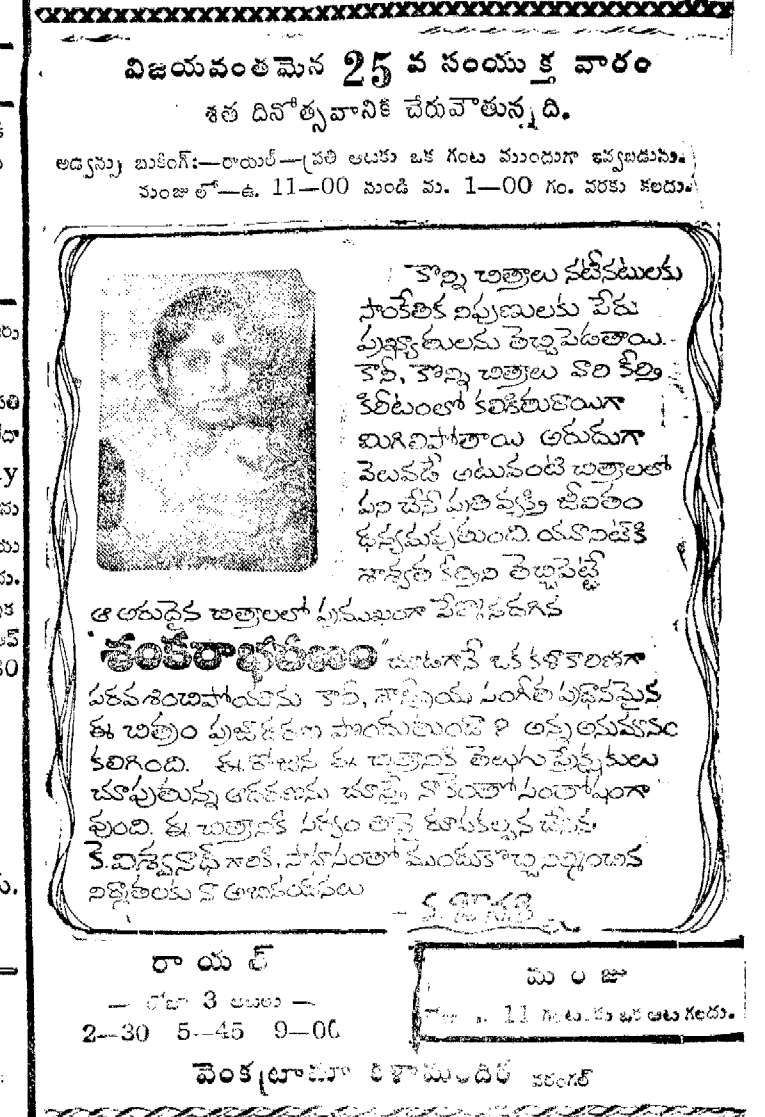 విజయవంతమైన 25 వ సంయుక్త వారం
శత దినోత్సవానికి చేరువౌతున్నది.
అడ్వాన్సు బుకింగ్:—రాయల్—ప్రతి ఆటకు ఒక గంట ముందుగా ఇవ్వబడును.
మంజులో—ఉ. 11—00 నుండి మ. 1—00 గం. వరకు కలదు.
"కొన్ని చిత్రాలు నటీనటులకు
సాంకేతిక నిపుణులకు పేరు
ప్రఖ్యాతులను తెచ్చిపెడతాయి.
కానీ, కొన్ని చిత్రాలు వారి కీర్తి
కిరీటంలో కలికితురాయిగా
మిగిలిపోతాయి అరుదుగా
వెలువడే అటువంటి చిత్రాలలో
పని చేసే ప్రతి వ్యక్తి జీవితం
ధన్యమవుతుంది. యూనిట్‌కి
శాశ్వత కీర్తిని తెచ్చిపెట్టే
ఆ అరుదైన చిత్రాలలో ప్రముఖంగా పేర్కొనదగిన
"శంకరాభరణం" చూడగానే ఒక కళాకారిణిగా
పరవశించిపోయాను కానీ, శాస్త్రీయ సంగీత ప్రధానమైన
ఈ చిత్రం ప్రజాదరణ పొందుతుందా ? అన్న అనుమానం
కలిగింది. ఈ రోజున ఈ చిత్రానికి తెలుగు ప్రేక్షకులు
చూపుతున్న ఆదరణను చూస్తే నాకెంతో సంతోషంగా
వుంది. ఈ చిత్రానికి సర్వం తానై రూపకల్పన చేసిన
కె.విశ్వనాథ్ గారికి, సాహసంతో ముందుకొచ్చి నిర్మించిన
నిర్మాతలకు నా అభినందనలు
రాయల్
— రోజూ 3 ఆటలు —
2—30 5—45 9—00
మంజు
11 గంటలకు ఒక ఆట కలదు.
వెంకట్రామా కళామందిర్ వరంగల్